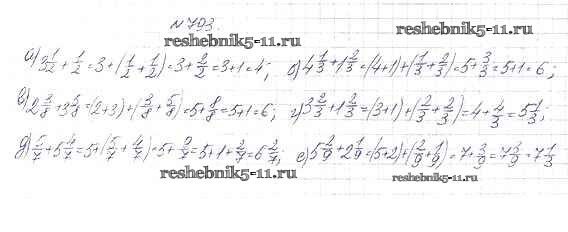 № 793.
reshebnik5-11.ru
reshebnik5-11.ru
а) 3 1/2 + 1/2 = 3 + (1/2 + 1/2) = 3 + 2/2 = 3+1 = 4; б) 4 1/3 + 1 2/3 = (4+1) + (1/3 + 2/3) = 5 + 3/3 = 5+1 = 6;
в) 2 3/8 + 3 5/8 = (2+3) + (3/8 + 5/8) = 5 + 8/8 = 5+1 = 6; г) 3 2/3 + 1 2/3 = (3+1) + (2/3 + 2/3) = 4 + 4/3 = 5 1/3;
д) 5/7 + 5 4/7 = 5 + (5/7 + 4/7) = 5 + 9/7 = 5 + 1 + 2/7 = 6 2/7; е) 5 2/9 + 2 1/9 = (5+2) + (2/9 + 1/9) = 7 + 3/9 = 7 3/9 = 7 1/3
reshebnik5-11.ru
reshebnik5-11.ru